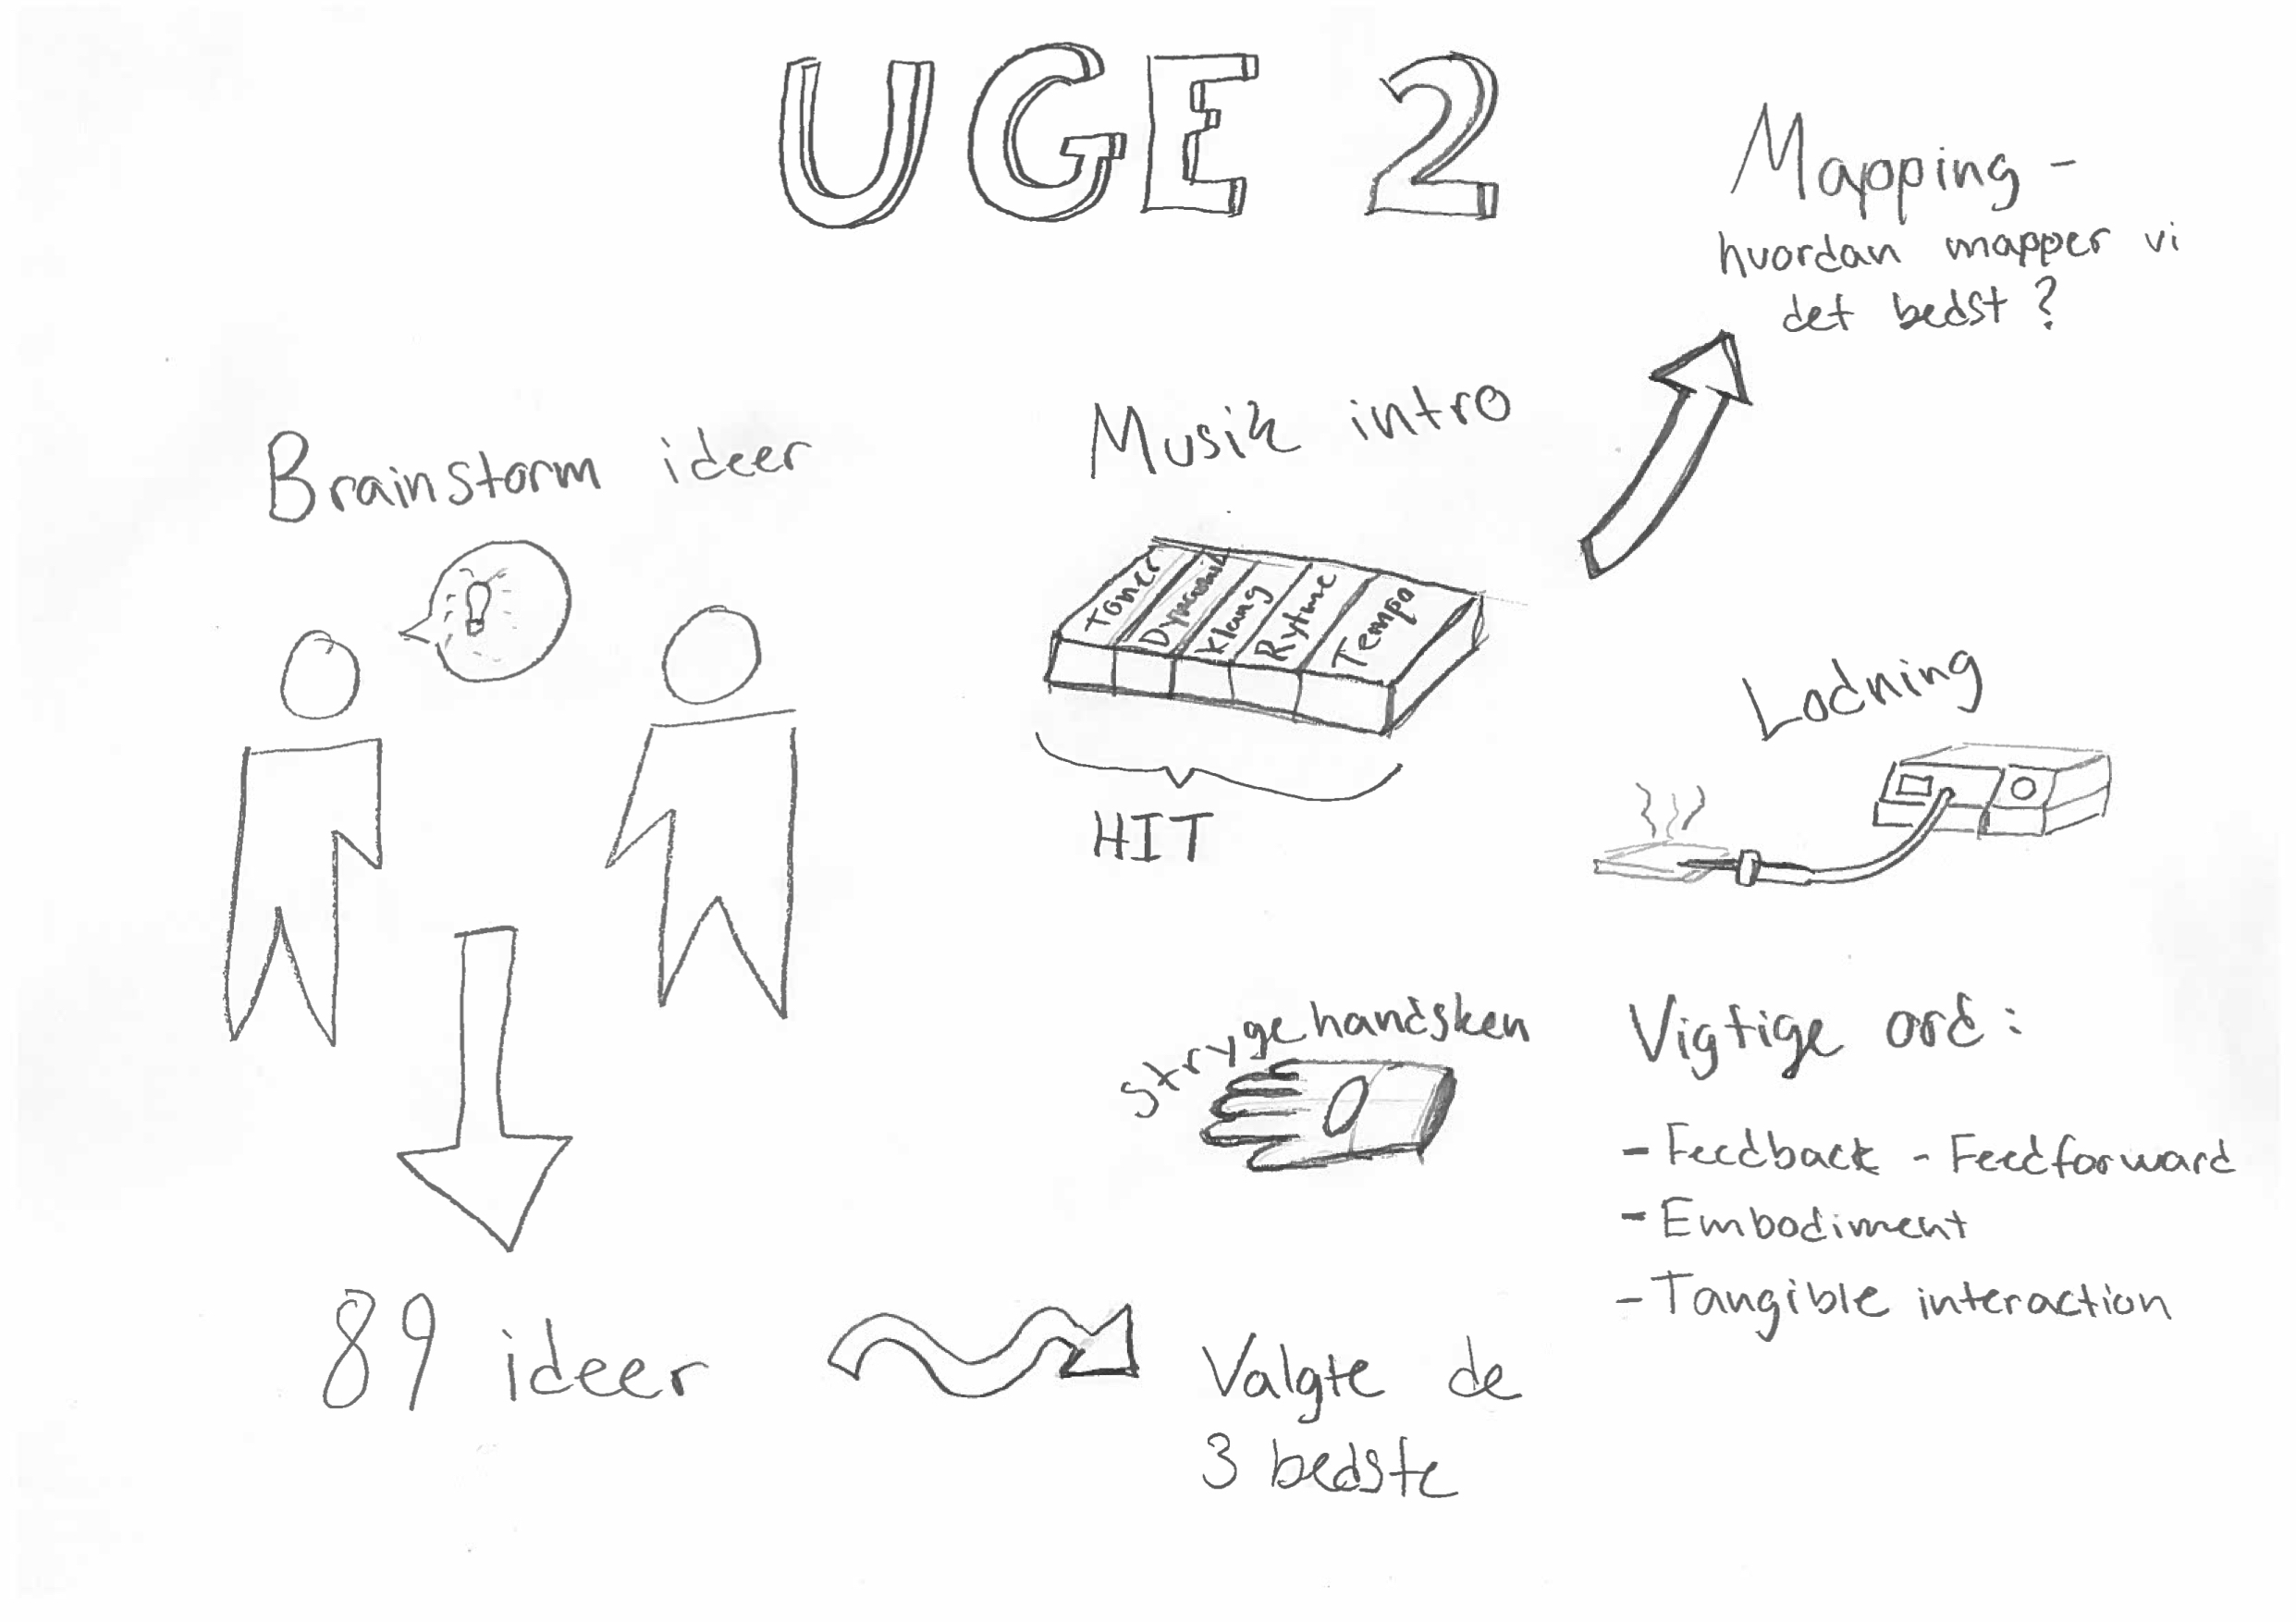 UGE 2
Mapping -
hvordan mapper vi
det bedst?
Brainstorm ideer
Musik intro
Toner
Dynamik
Klang
Rytme
Tempo
HIT
Lodning
Strygehandsken
Vigtige ord:
- Feedback - Feedforward
- Embodiment
- Tangible interaction
89 ideer
Valgte de
3 bedste